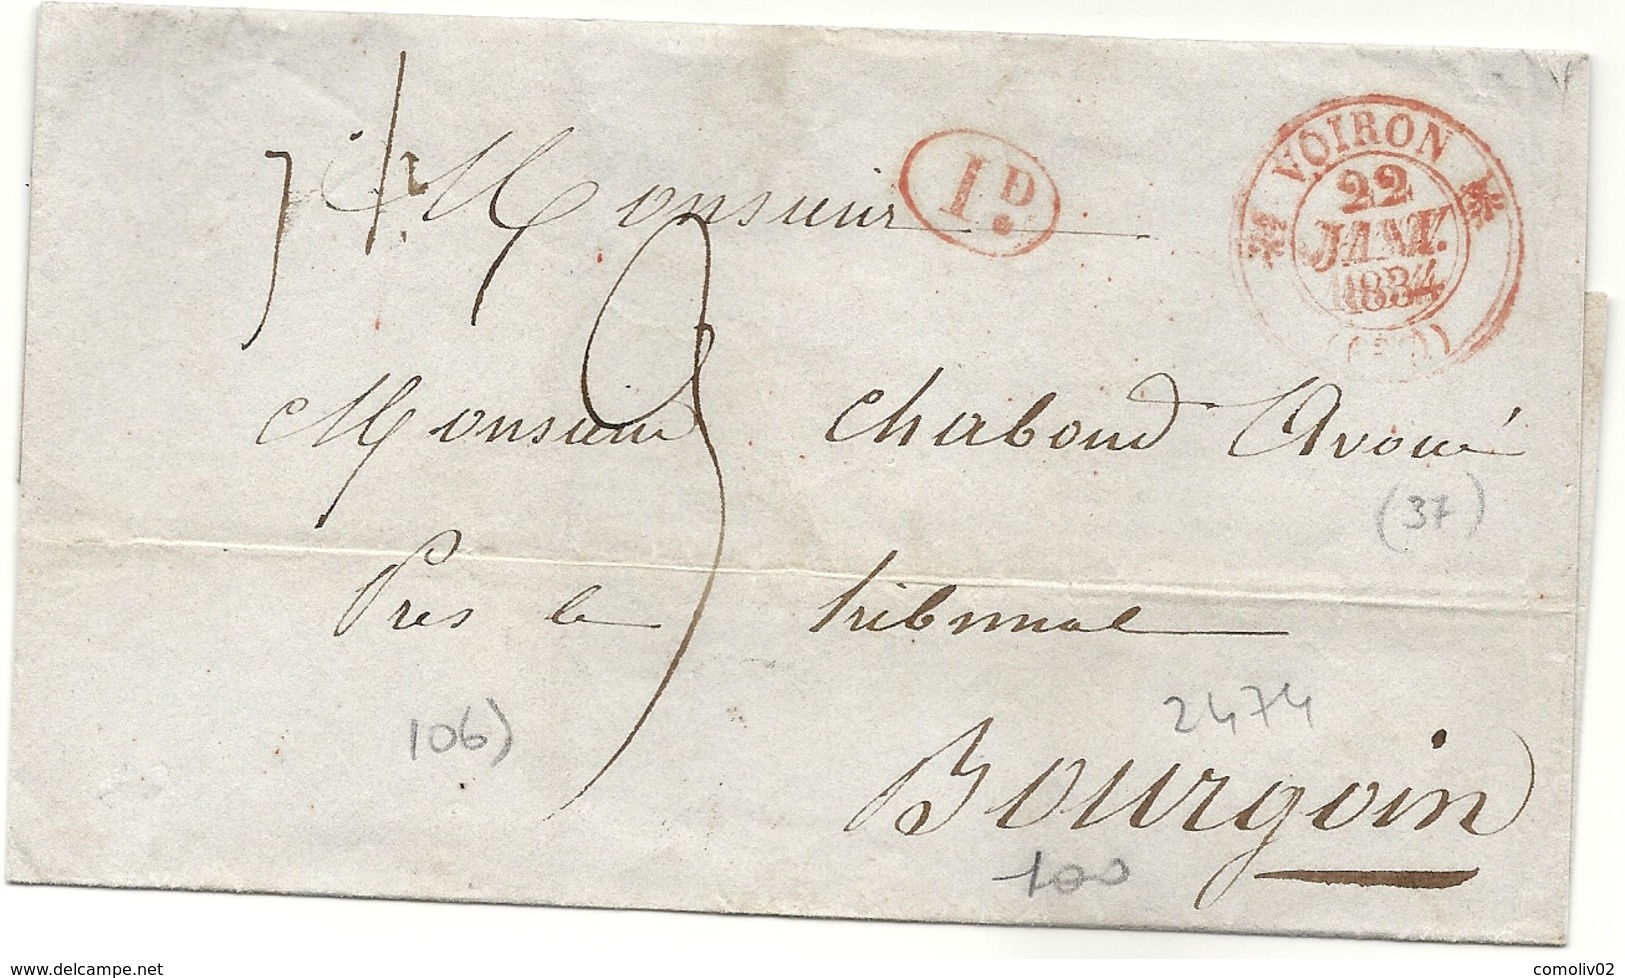 VOIRON
22
JANV.
1834
1D.
7 1/2
Monsieur
Monsieur Chaboud Avoué
(37)
Près le tribunal
106)
2474
Bourgoin
100
www.delcampe.net
comoliv02